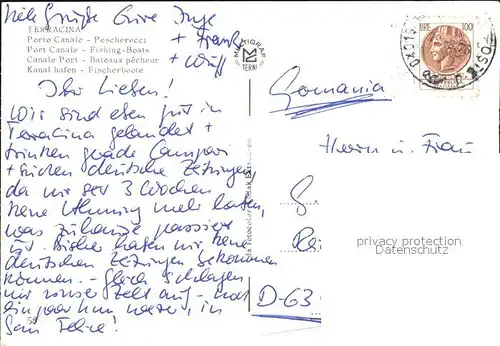 Viele Grüße Eure Inge
+ Frank
+ Wuff
TERRACINA
Porto Canale - Pescherecci
Port Canale - Fishing-Boats
Canale Port - Bateaux pêcheur
Kanal hafen - Fischerboote
TERNI
LIRE 100
Ihr Lieben!
Wir sind eben gut in
Terracina gelandet +
trinken gerade Campari
+ suchen deutsche Zeitungen,
da wir seit 3 Wochen
keine Ahnung mehr haben,
was zuhause passiert
ist. Bisher haben wir keine
deutschen Zeitungen bekommen
können. - Gleich schlagen
wir unser Zelt auf - noch
ein paar km weiter, in
San Felice!
58
Germania
Herrn u. Frau
D-63
privacy protection
Datenschutz